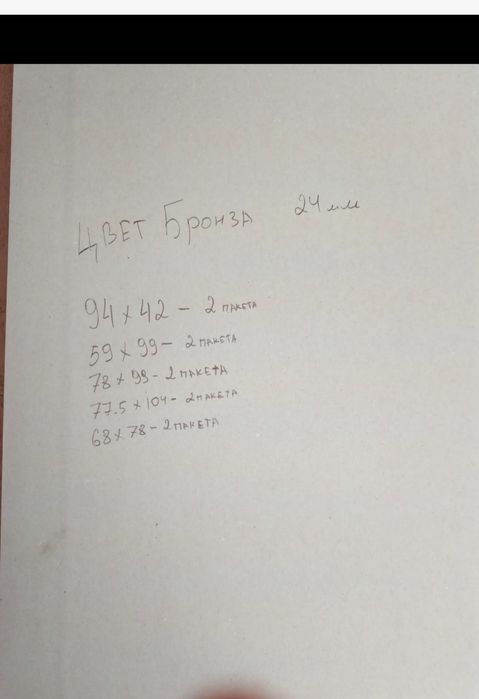 ЦВЕТ Бронза 24 мм
94 x 42 - 2 ПАКЕТА
59 x 99 - 2 ПАКЕТА
78 x 99 - 2 ПАКЕТА
77.5 x 104 - 2 ПАКЕТА
68 x 78 - 2 ПАКЕТА